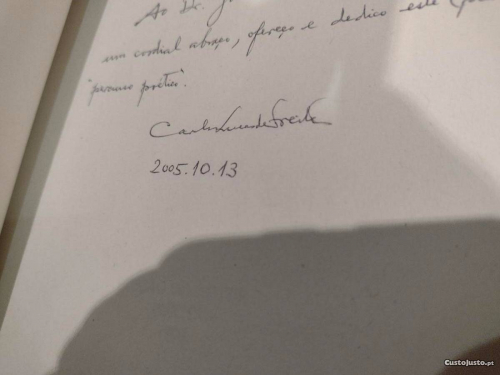 Ao Dr.
um cordial abraço, ofereço e dedico este
"percurso poético".
Carlos Luis de Freitas
2005.10.13
CustoJusto.pt